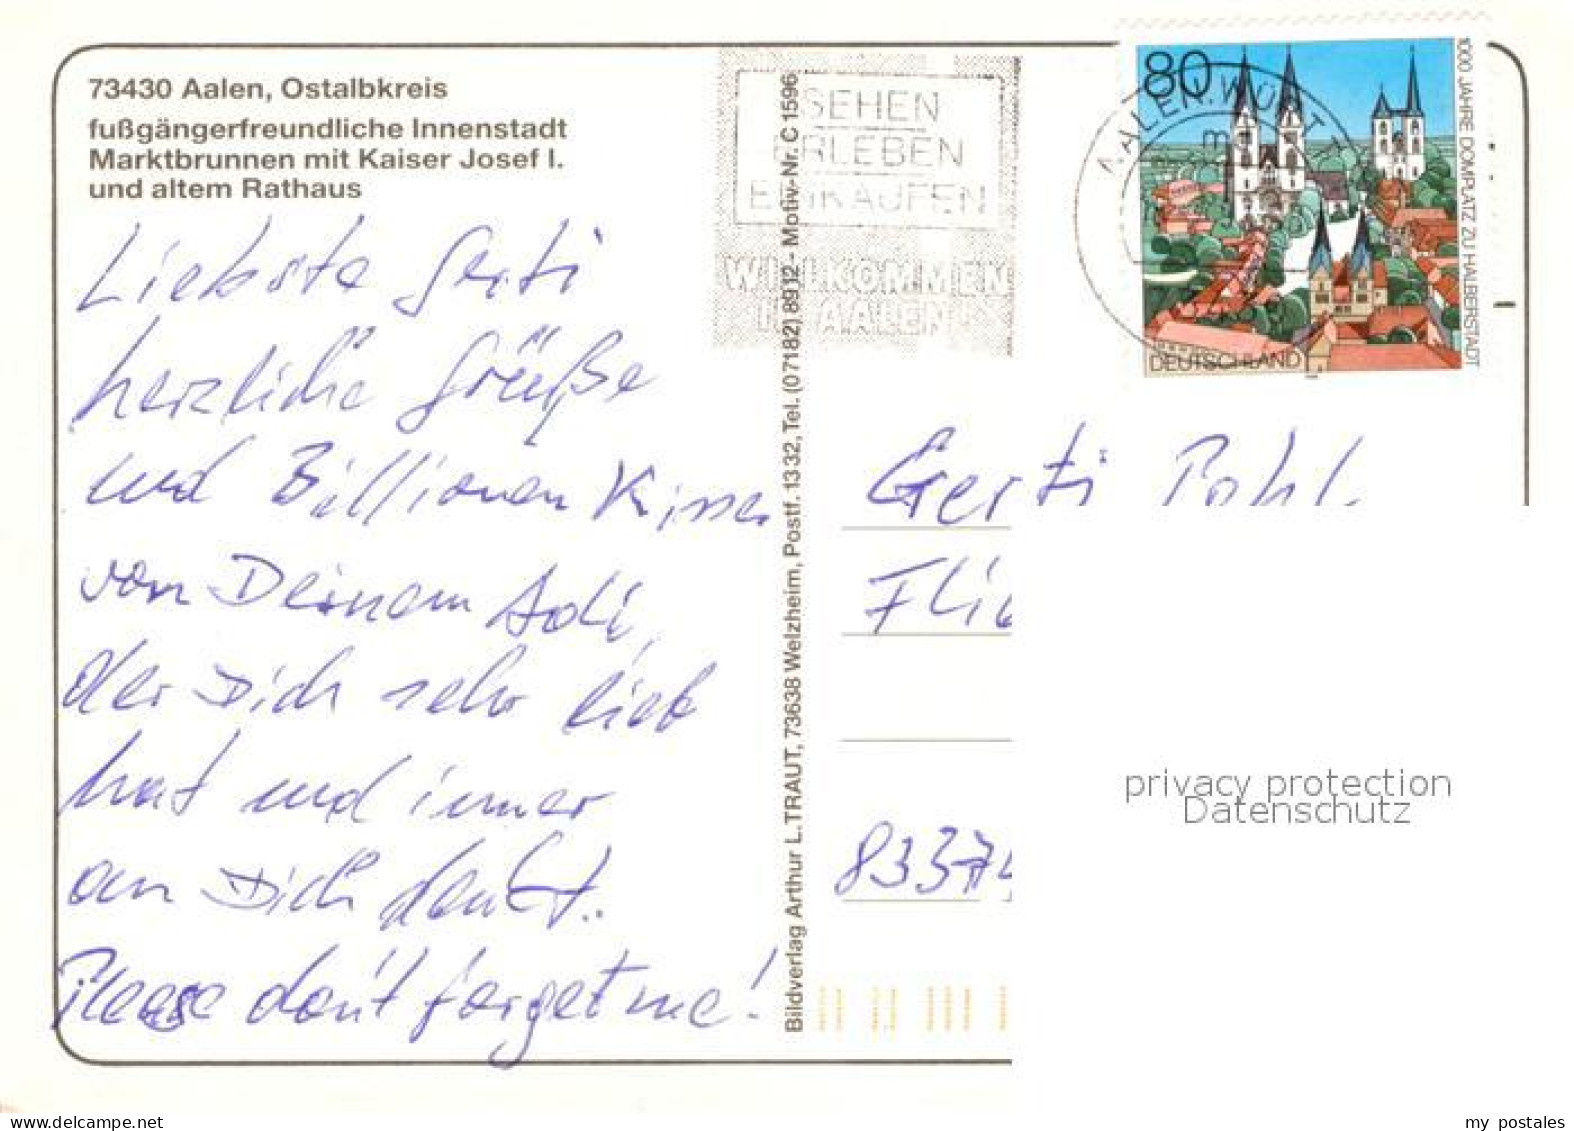 73430 Aalen, Ostalbkreis
fußgängerfreundliche Innenstadt
Marktbrunnen mit Kaiser Josef I.
und altem Rathaus
Liebste Gerti
herzliche Grüße
und Billionen Küsse
von Deinem Adi,
der Dich sehr lieb
hat und immer
an Dich denkt.
Please don't forget me!
Bildverlag Arthur L. TRAUT, 73638 Welzheim, Postf. 1332, Tel. (07182) 8912 - Motiv-Nr. C 1596
SEHEN
ERLEBEN
EINKAUFEN
WILLKOMMEN
IN AALEN
AALEN, WÜRTT
80
1000 JAHRE DOMPLATZ ZU HALBERSTADT
DEUTSCHLAND
Gerti Pohl
83374
privacy protection
Datenschutz
my postales